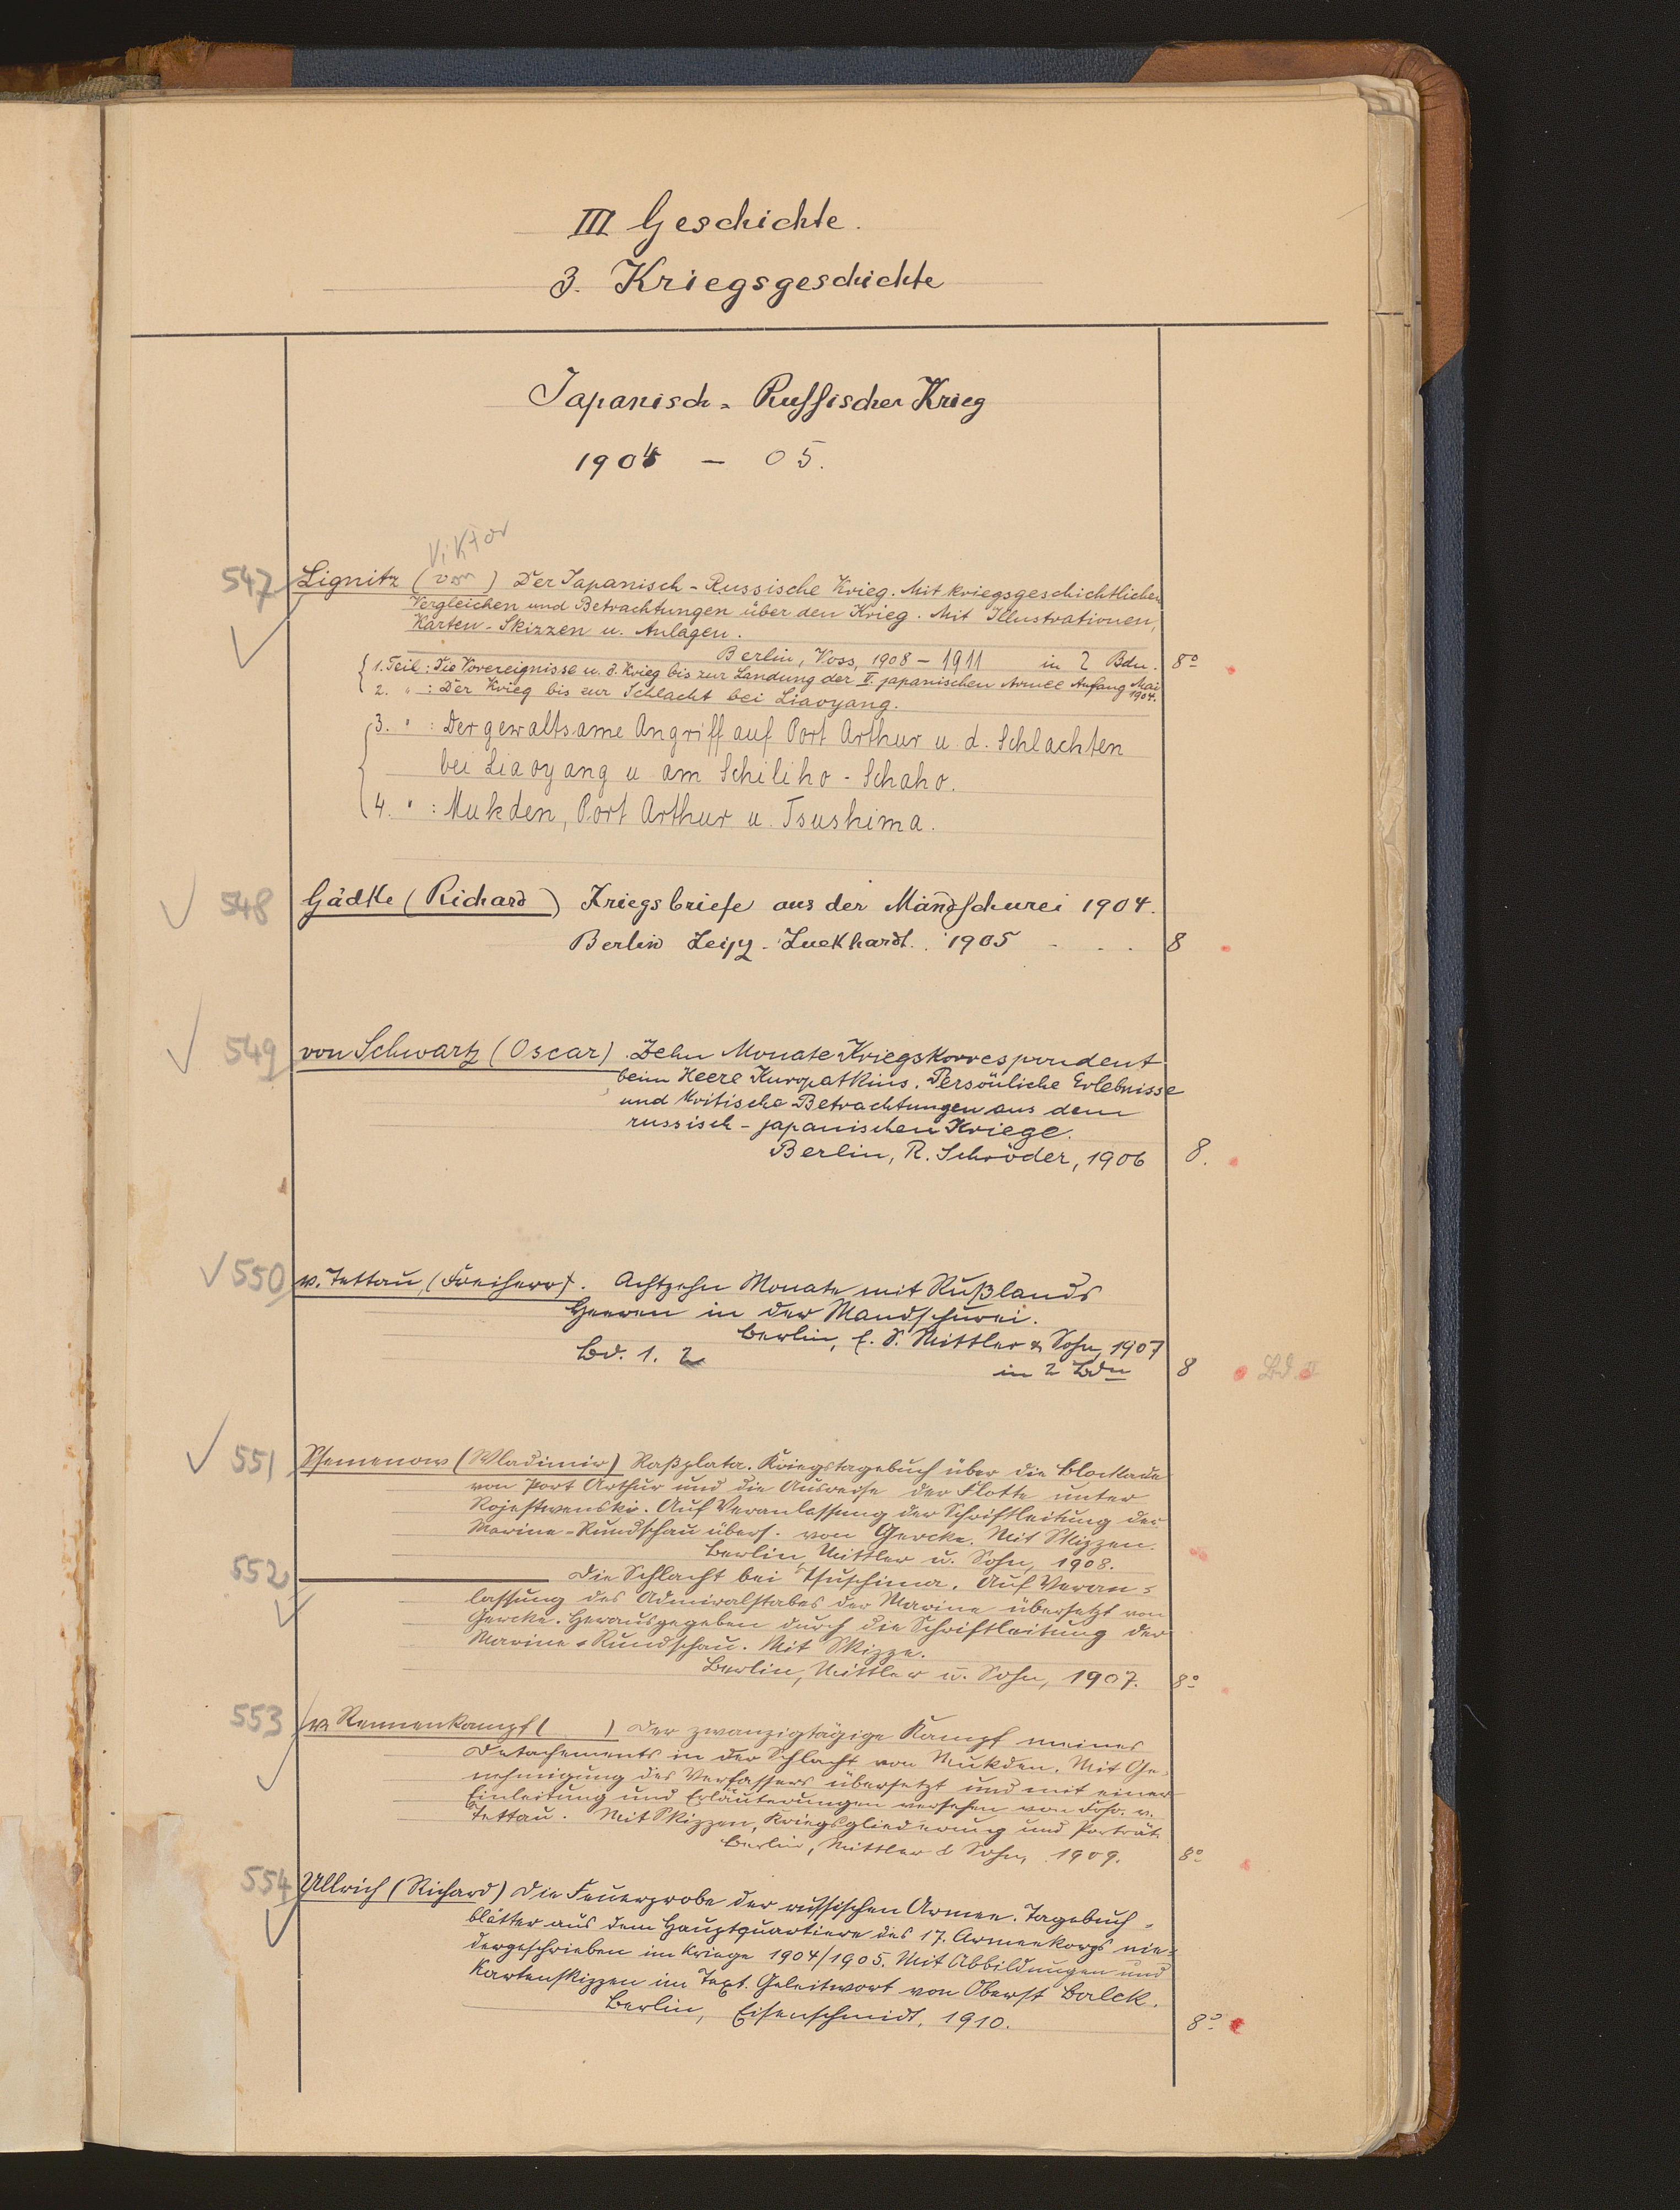 III Geschichte.
3. Kriegsgeschichte
Japanisch-Russischer Krieg
1904 – 05.
Viktor
547 Lignitz (von) Der Japanisch-Russische Krieg. Mit kriegsgeschichtlichen
Vergleichen und Betrachtungen über den Krieg. Mit Illustrationen,
Karten-Skizzen u. Anlagen.
Berlin, Voss, 1908–1911 in 2 Bdn. 8°
1. Teil: Die Vorereignisse u. d. Krieg bis zur Landung der II. japanischen Armee Anfang Mai 1904.
2. " : Der Krieg bis zur Schlacht bei Liaoyang.
3. " : Der gewaltsame Angriff auf Port Arthur u. d. Schlachten
bei Liaoyang u am Schiliho-Schaho.
4. " : Mukden, Port Arthur u. Tsushima.
548 Gädke (Richard) Kriegsbriefe aus der Mandschurei 1904.
Berlin Leipz. Luckhardt. 1905 - . . 8
549 von Schwartz (Oscar). Zehn Monate Kriegskorrespondent
beim Heere Kuropatkins. Persönliche Erlebnisse
und kritische Betrachtungen aus dem
russisch-japanischen Kriege.
Berlin, R. Schröder, 1906 8.
550 v. Tettau, (Freiherr). Achtzehn Monate mit Rußlands
Heeren in der Mandschurei.
Berlin, E. S. Mittler & Sohn, 1907
Bd. 1. 2 in 2 Bdn 8 Bd. II
551 Ssemenow (Wladimir) Raßplata. Kriegstagebuch über die Blockade
von Port Arthur und die Ausreise der Flotte unter
Rojestwenski. Auf Veranlassung der Schriftleitung der
Marine-Rundschau übers. von Gercke. Mit Skizzen.
Berlin, Mittler u. Sohn, 1908.
552 Die Schlacht bei Tsuschima. Auf Veran-
lassung des Admiralstabes der Marine übersetzt von
Gercke. Herausgegeben durch die Schriftleitung der
Marine-Rundschau. Mit Skizze.
Berlin, Mittler u. Sohn, 1907. 8°
553 v. Rennenkampf ( ) Der zwanzigtägige Kampf meines
Detachements in der Schlacht von Mukden. Mit Ge-
nehmigung des Verfassers übersetzt und mit einer
Einleitung und Erläuterungen versehen von Frhr. v.
Tettau. Mit Skizzen, Kriegsgliederung und Porträt.
Berlin, Mittler & Sohn, 1909. 8°
554 Ullrich (Richard) Die Feuerprobe der russischen Armee. Tagebuch-
blätter aus dem Hauptquartiere des 17. Armeekorps nie-
dergeschrieben im Kriege 1904/1905. Mit Abbildungen und
Kartenskizzen im Text. Geleitwort von Oberst Balck.
Berlin, Eisenschmidt, 1910. 8°